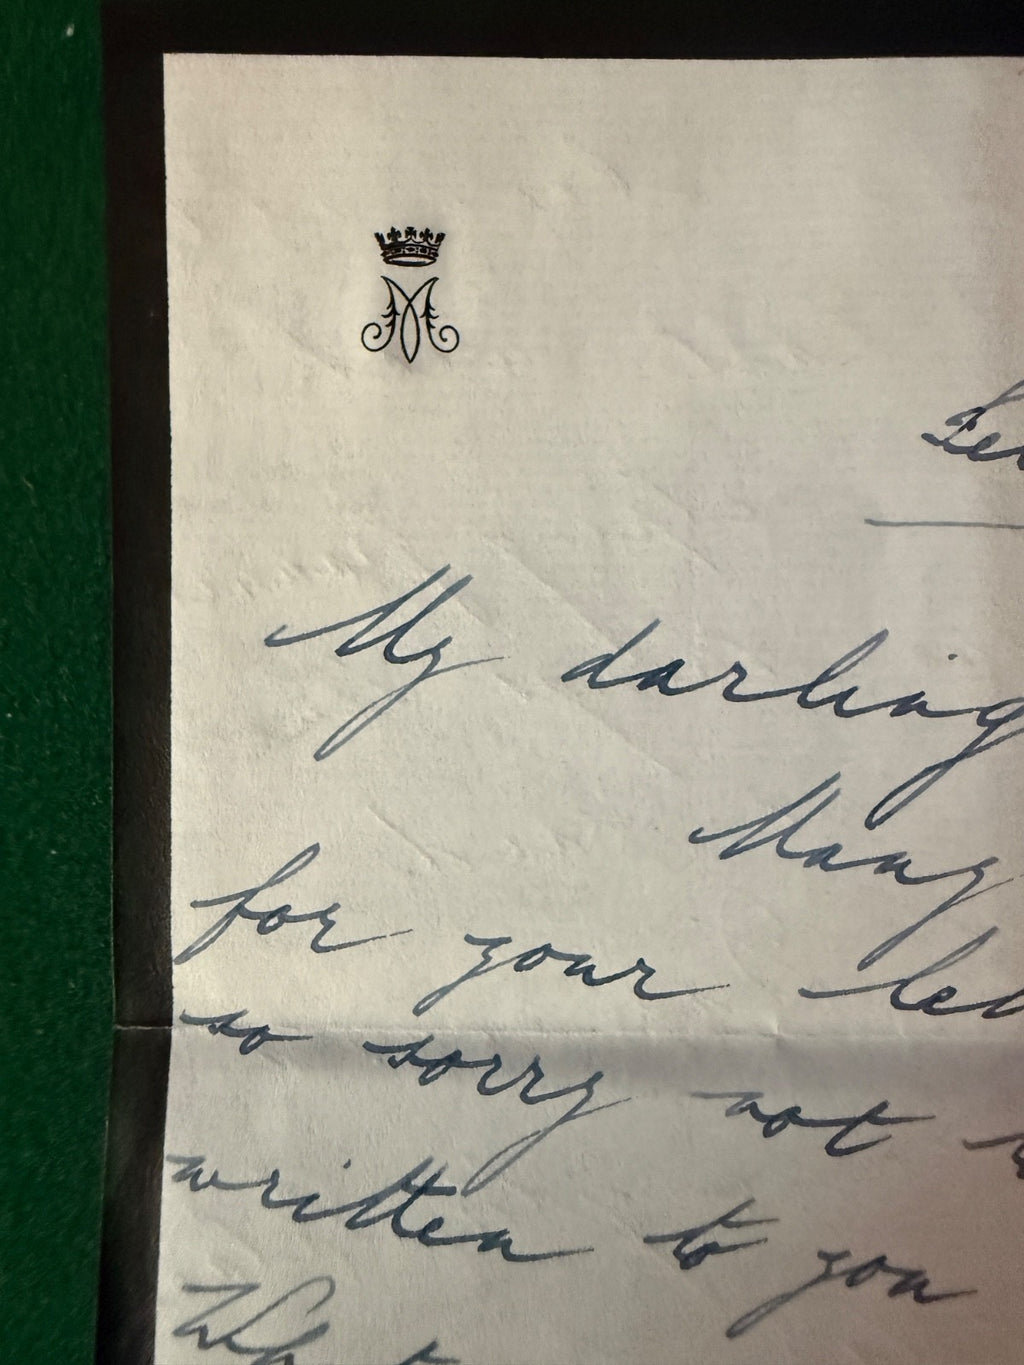 M
My darling
Many
for your
so sorry not
written to you